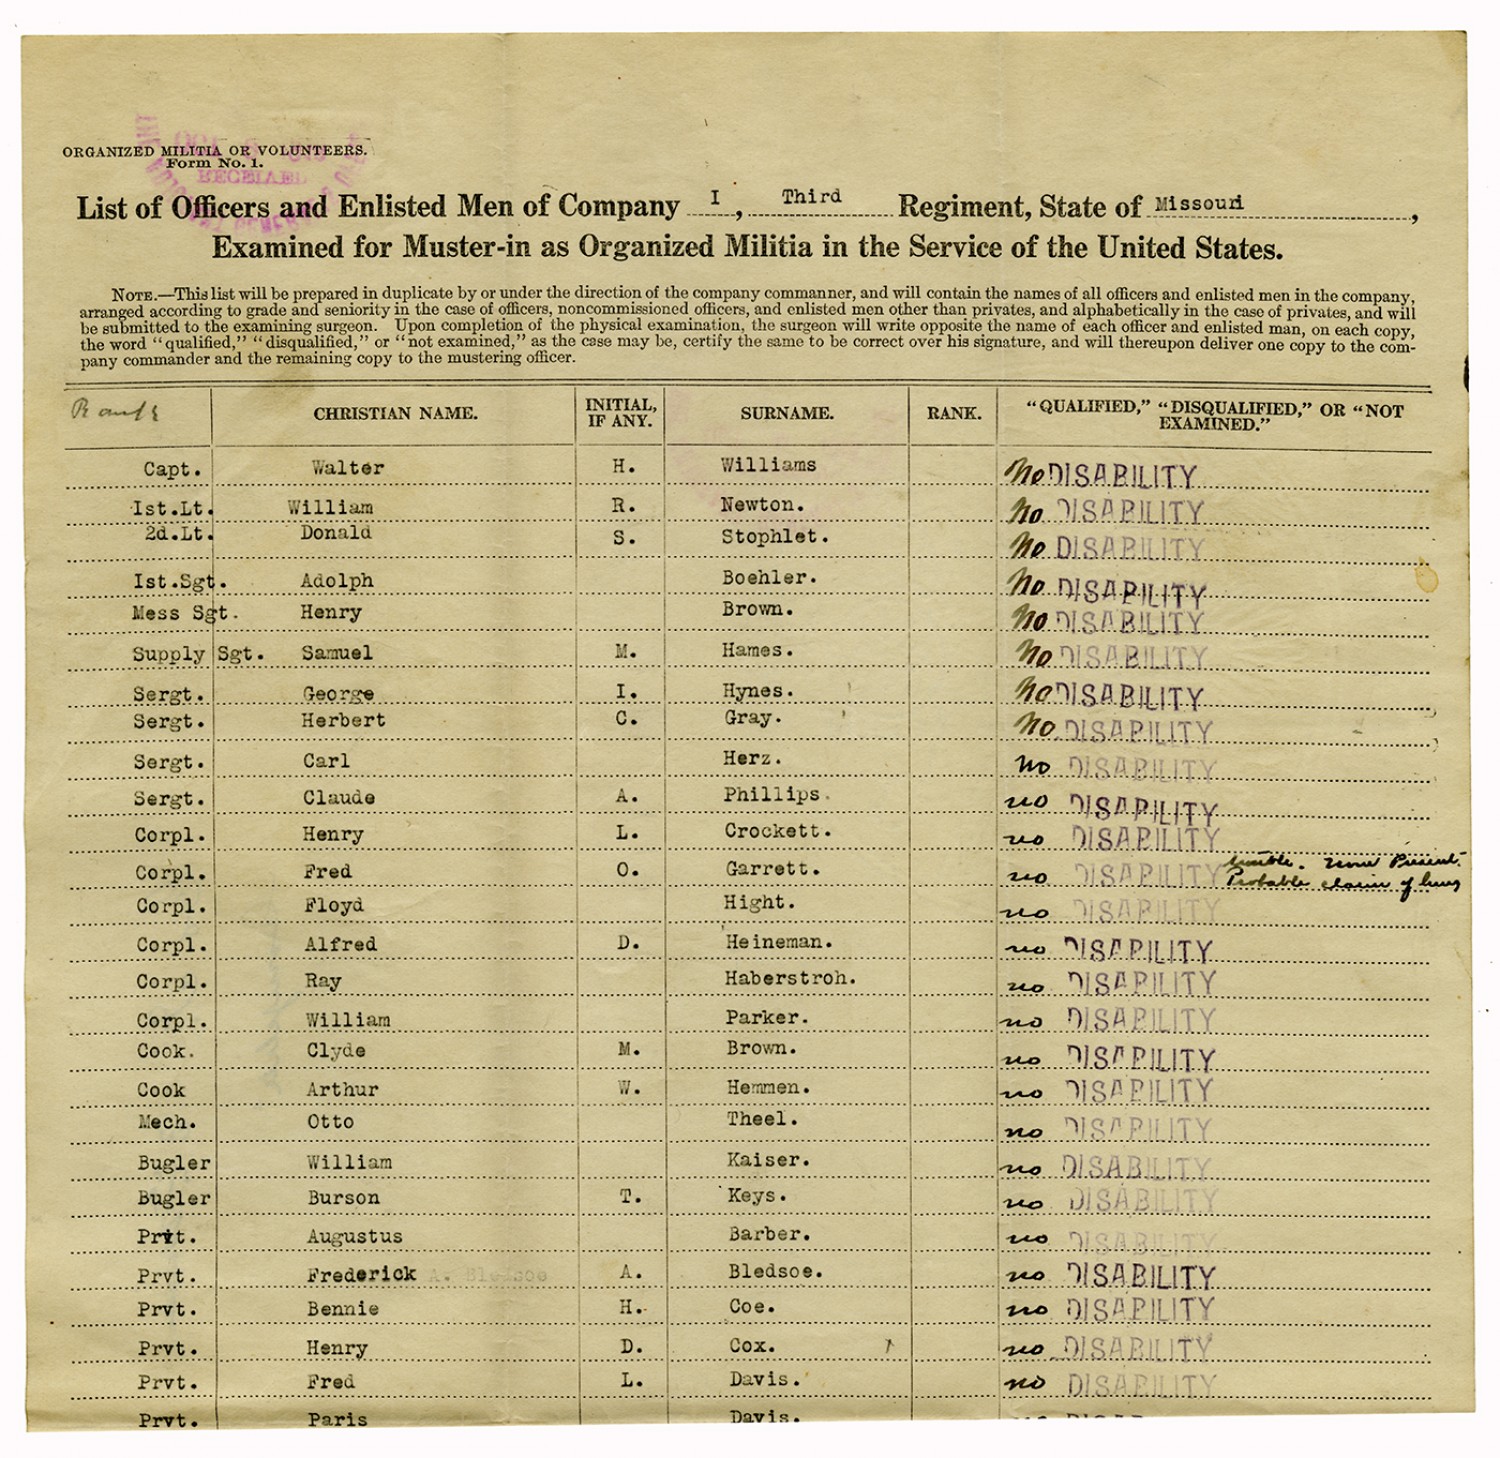 ORGANIZED MILITIA OR VOLUNTEERS.
Form No. 1.
RECEIVED
List of Officers and Enlisted Men of Company I, Third Regiment, State of Missouri,
Examined for Muster-in as Organized Militia in the Service of the United States.
NOTE.—This list will be prepared in duplicate by or under the direction of the company commanner, and will contain the names of all officers and enlisted men in the company,
arranged according to grade and seniority in the case of officers, noncommissioned officers, and enlisted men other than privates, and alphabetically in the case of privates, and will
be submitted to the examining surgeon. Upon completion of the physical examination, the surgeon will write opposite the name of each officer and enlisted man, on each copy,
the word "qualified," "disqualified," or "not examined," as the case may be, certify the same to be correct over his signature, and will thereupon deliver one copy to the com-
pany commander and the remaining copy to the mustering officer.
Rank CHRISTIAN NAME. INITIAL, IF ANY. SURNAME. RANK. "QUALIFIED," "DISQUALIFIED," OR "NOT EXAMINED."
Capt. Walter H. Williams No DISABILITY
Ist.Lt. William R. Newton. No DISABILITY
2d.Lt. Donald S. Stophlet. No DISABILITY
Ist.Sgt. Adolph Boehler. No DISABILITY
Mess Sgt. Henry Brown. No DISABILITY
Supply Sgt. Samuel M. Hames. No DISABILITY
Sergt. George I. Hynes. No DISABILITY
Sergt. Herbert C. Gray. No DISABILITY
Sergt. Carl Herz. No DISABILITY
Sergt. Claude A. Phillips. no DISABILITY
Corpl. Henry L. Crockett. no DISABILITY
Corpl. Fred O. Garrett. no DISABILITY trouble. none Present. Probable claim of lung
Corpl. Floyd Hight. no DISABILITY
Corpl. Alfred D. Heineman. no DISABILITY
Corpl. Ray Haberstroh. no DISABILITY
Corpl. William Parker. no DISABILITY
Cook. Clyde M. Brown. no DISABILITY
Cook Arthur W. Hemmen. no DISABILITY
Mech. Otto Theel. no DISABILITY
Bugler William Kaiser. no DISABILITY
Bugler Burson T. Keys. no DISABILITY
Prvt. Augustus Barber. no DISABILITY
Prvt. Frederick A. Bledsoe A. Bledsoe. no DISABILITY
Prvt. Bennie H. Coe. no DISABILITY
Prvt. Henry D. Cox. no DISABILITY
Prvt. Fred L. Davis. no DISABILITY
Prvt. Paris Davis.